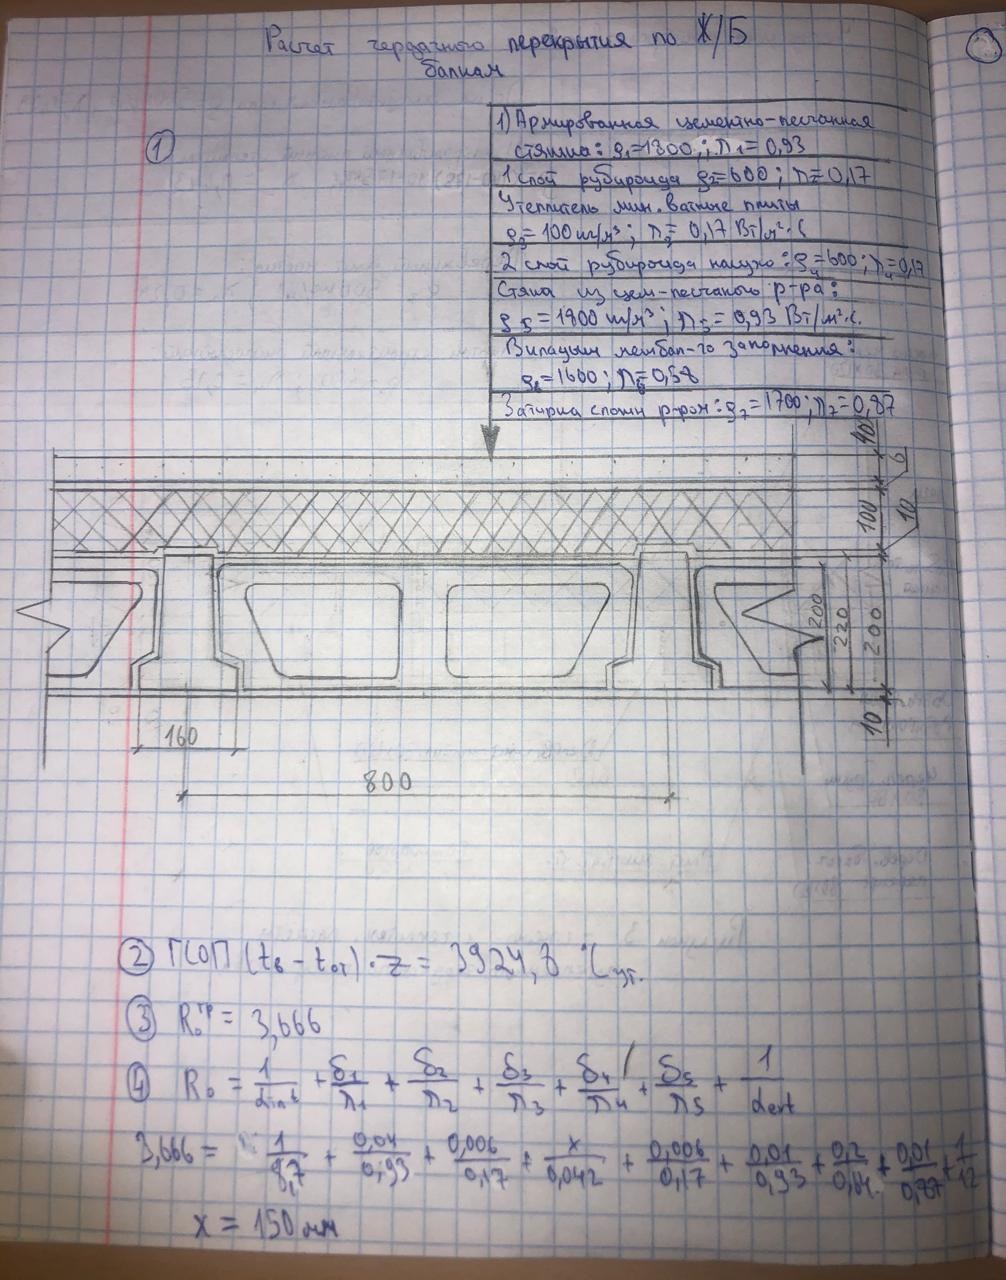 Расчет чердачного перекрытия по Ж/Б
балкам
1
1) Армированная цементно-песчанная
стяжка: ρ₁=1800; λ₁=0,93
1 слой рубироида ρ₂=600; λ=0,17
Утеплитель мин. ватные плиты
ρ₃=100 кг/м³; λ₃= 0,17 Вт/м²·С
2 слой рубироида насухо: ρ₄=600; λ₄=0,17
Стяжа из цем-песчаного р-ра:
ρ5=1800 кг/м³; λ5=0,93 Вт/м²·С.
Вкладыши межбал-го заполнения:
ρ₆=1600; λ₆=0,58
Затирка сложн р-ром: ρ₇=1700; λ₇=0,87
40
6
100
10
200
220
200
10
160
800
2 ГСОП (tв - tот)·z = 3924,8 °С сут.
3 R₀ᵗᵖ = 3,666
4 R₀ = 1/αint + δ1/λ1 + δ2/λ2 + δ3/λ3 + δ4/λ4 + δ5/λ5 + 1/αext
3,666 = 1/8,7 + 0,04/0,93 + 0,006/0,17 + x/0,042 + 0,006/0,17 + 0,01/0,93 + 0,2/ + 0,01/0,87 + 1/12
x = 150 мм